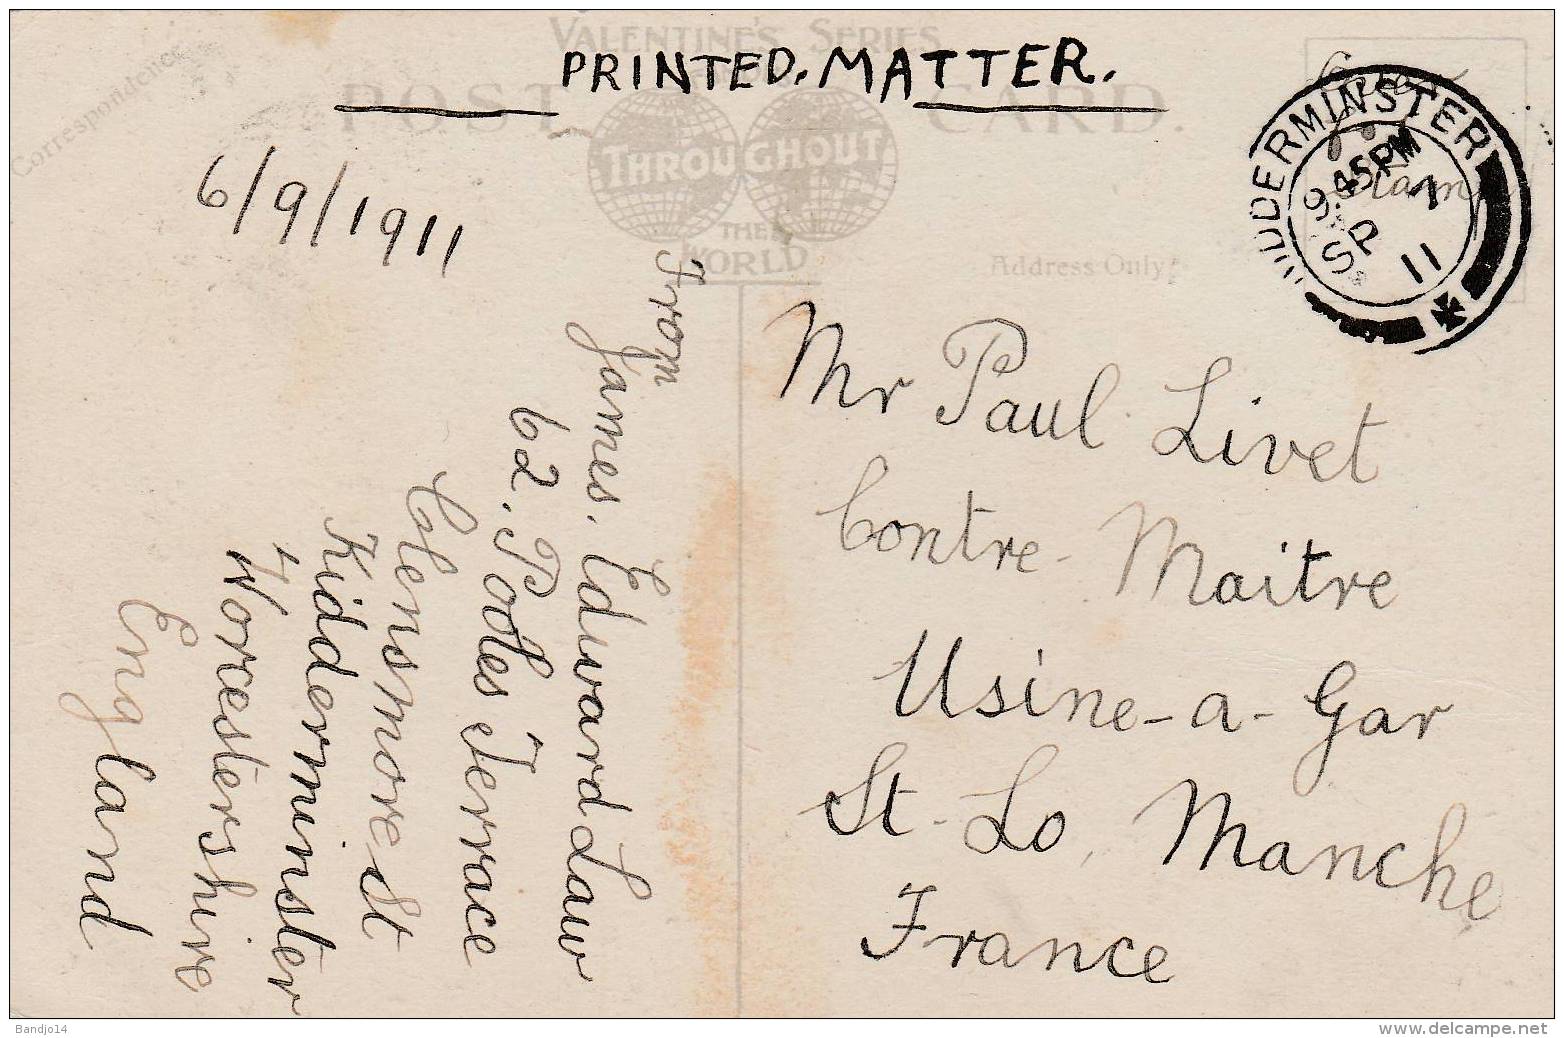 VALENTINE'S SERIES
PRINTED. MATTER.
POST CARD.
THROUGHOUT
THE
WORLD
Correspondence
Address Only
KIDDERMINSTER
9.45PM
SP 7
11
6/9/1911
From
James. Edward Law
62. Pooles Terrace
Clensmore St
Kidderminster
Worcestershire
England
Mr Paul Livet
Contre-Maitre
Usine-a-Gar
St-Lo, Manche
France
Bandjo14
www.delcampe.net